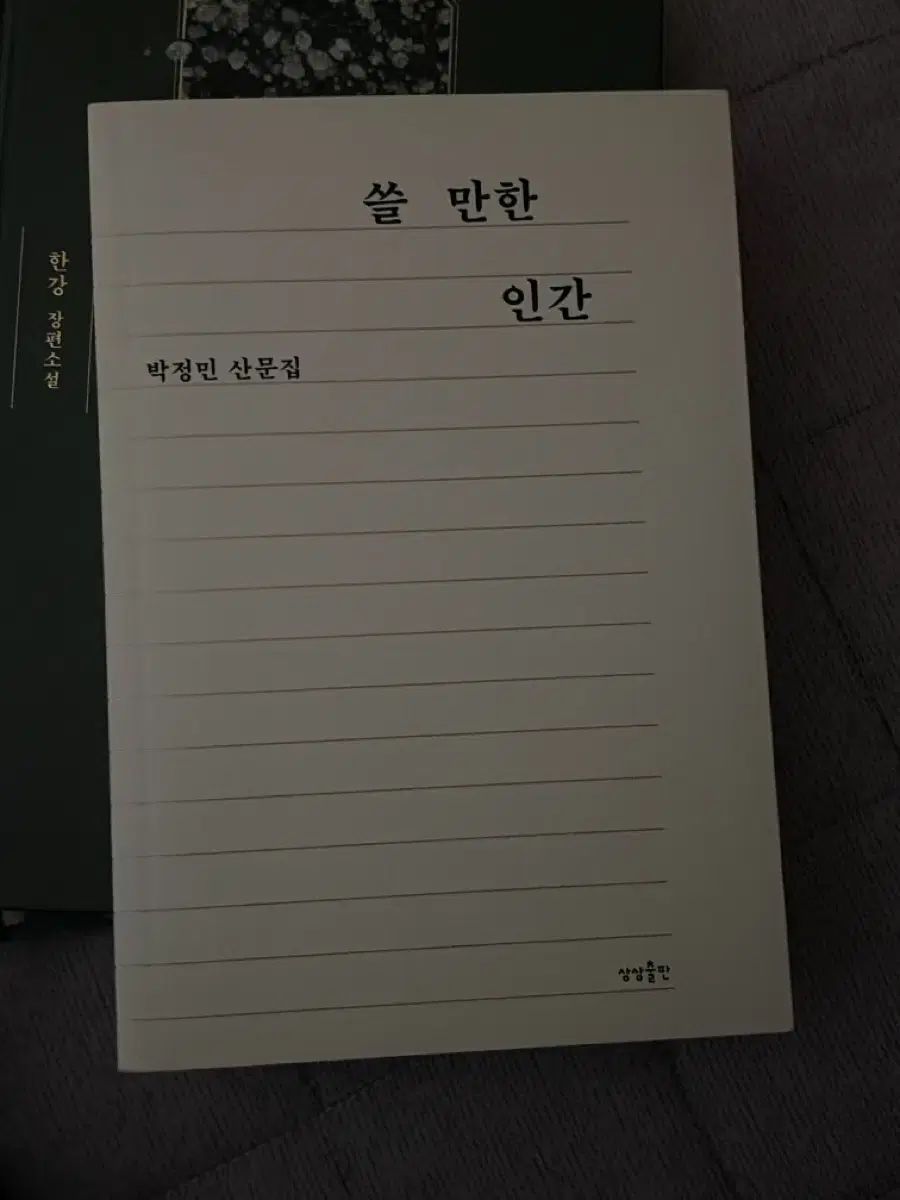 쓸 만한
인간
박정민 산문집
상상출판
한강 장편소설